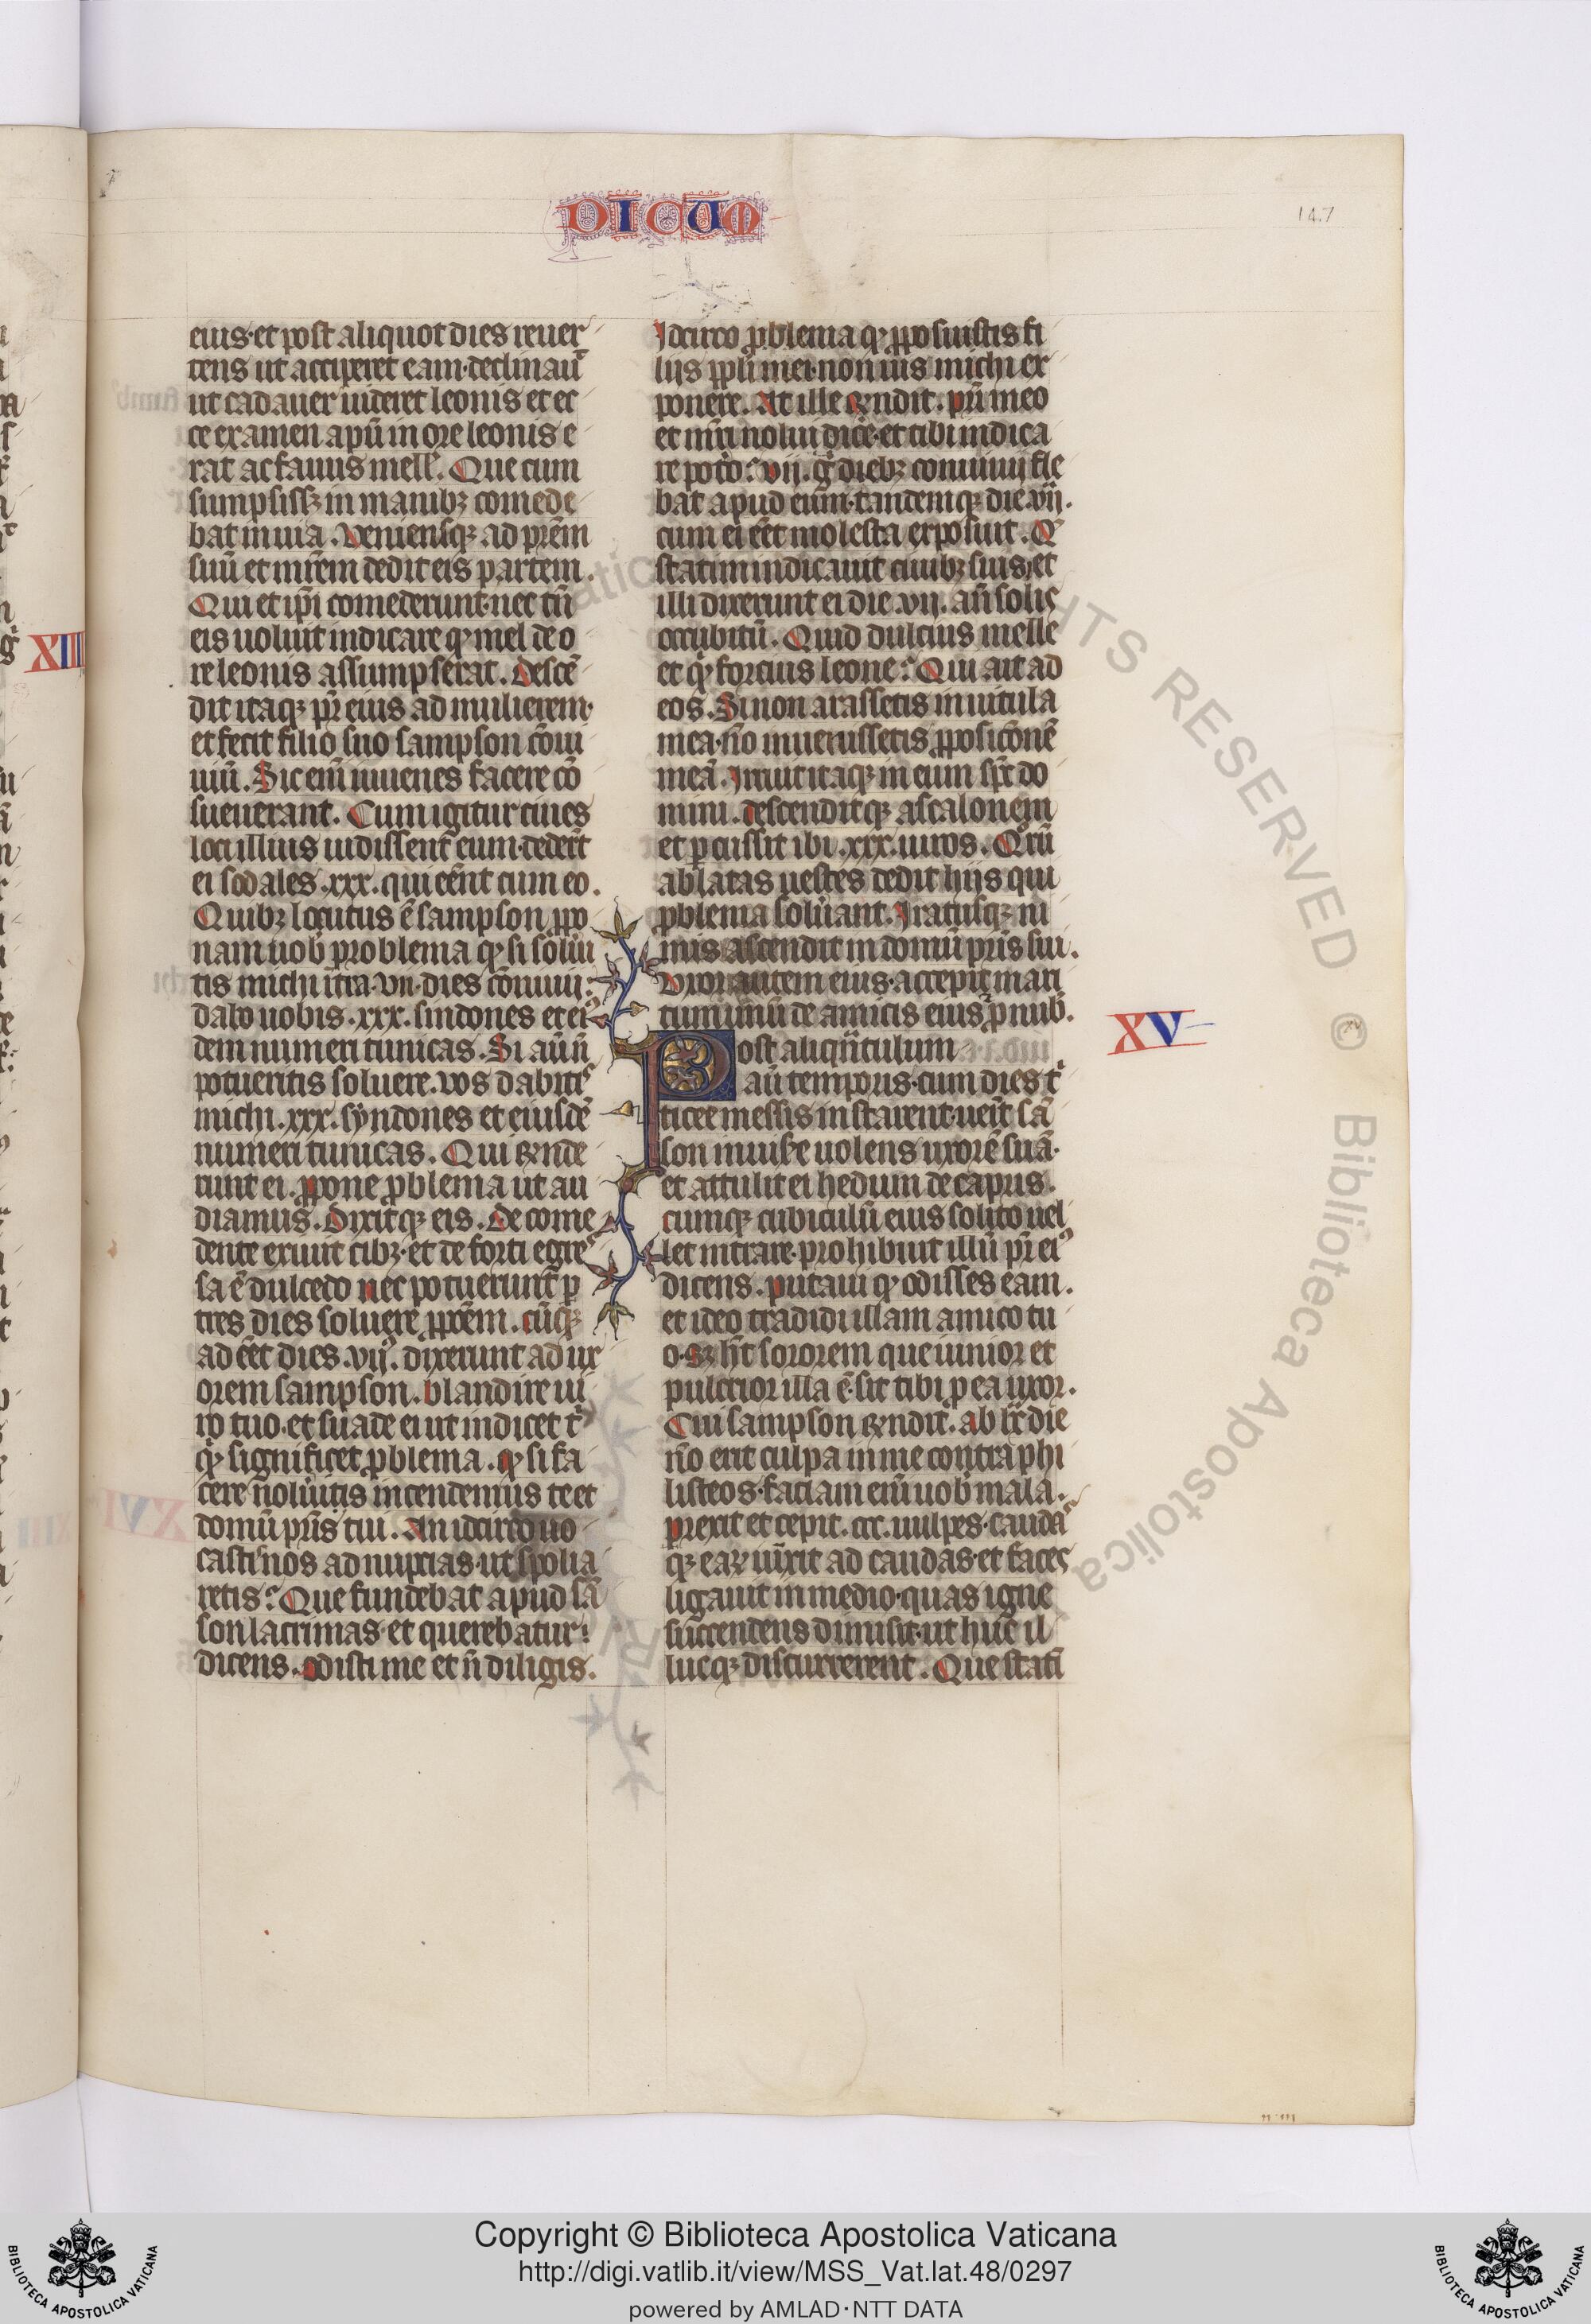 DICUM
147
eius· et post aliquot dies reuer
tens ut acciperet eam· declinauͭ
ut cadauer uideret leonis et ec
ce examen apū in ore leonis e
rat ac fauus mell᷒. Que cum
sumpsissꝫ in manibꝫ comede
bat in uia. Veniensqꝫ ad pr̄em
suū et mr̄em dedit eis partem.
Qui et ip̄i comederunt· nec tn̄
eis uoluit indicare qꝫ mel de o
re leonis assumpserat. Descē
dit itaqꝫ pr̄ eius ad mulierem·
et fecit filio suo sampson cōui
uiū. Sic enī iuuenes facere cō
sueuerant. Cum igitur ciues
loci illius uidissent eum· dederūt
ei sodales .xxx. qui eēnt cum eo.
Quibꝫ locutus ē sampson ꝓpo
nam uob̄ problema qꝫ si soluı
tis michi īt̄ra .vii. dies cōuiuij:
dabo uobis .xxx. sindones et eiꝰ
dem numeri tunicas. Si aū n̄
potueritis soluere. vos dabitis
michi .xxx. syndones et eiusdē
numeri tunicas. Qui r̄nde
runt ei. ꝓpone ꝓblema ut au
diamus. Dixitqꝫ eis. De come
dente exiuit cibꝫ· et de forti egres
sa ē dulcedo nec potuerunt ꝑ
tres dies soluere ꝓpōēm. cūqꝫ
adeēt dies .vijꝰ. dixerunt ad ux
orem sampson. blandire ui
ro tuo· et suade ei ut indicet tͥ
qͥd significet ꝓblema. qꝫ si fa
cere nolūitis incendemus te et
domū pr̄is tui. An idcirco uo
castis nos ad nuptias· ut spolia
retis? Que fundebat apud sā
son lacrimas· et querebatur:
dicens. odisti me et n̄ diligis.
Idcirco ꝓblema qꝫ ꝓposuistis fi
liis ppl̄i mei· non uis michi ex
ponere. At ille r̄ndit. pr̄i meo
et mr̄i nolui dicē· et tibi indica
re poto? vij. gͦ diebꝫ conuiuij fle
bat apud eum· tandemqꝫ die .vij.
cum ei eēt molesta exposuit. Q̄
statim indicauit ciuibꝫ suis, et
illi dixerunt ei die .vij. an̄ solis
occubitū. Quid dulcius melle
et qͥd forcius leone? Qui ait ad
eos. Si non arassetis in uitula
mea· nō inuenissetis ꝓposicōnē
meā. Irruit itaqꝫ in eum spc̄ do
mini. descenditqꝫ ascalonem
et ꝑcussit ibi .xxx. uiros. Qͦrū
ablatas uestes dedit hijs qui
ꝓblema soluant. Iratusqꝫ ni
mis ascendit in domū pr̄is sui.
Vxor autem eius· accepit mari
tum unū de amicis eius ꝓnub̄.
XV
Post aliqn̄tulum
aū temporis· cum dies tͥ
ticee messis instarent· uenit sā
son inuisere uolens uxorē suā·
et attulit ei hedum de capris.
cumqꝫ cubiculū eius solito uel
let intrare· prohibuit illū pr̄ eiꝰ
dicens. putaui qꝫ odisses eam.
et ideo tradidi illam amico tu
o· sꝫ hēt sororem que iunior et
pulcrior illa ē· sit tibi ꝓ ea uxor.
Cui sampson r̄ndit. ab hͨ die
nō erit culpa in me contra phi
listeos· faciam enī uob̄ mala.
prexit et cepit .ccc. uulpes· caudas
qꝫ eaꝝ iūxit ad caudas· et faces
ligauit in medio· quas igne
succendens dimisit· ut huc il
lucqꝫ discurrerent. Que statī
XIII
Copyright © Biblioteca Apostolica Vaticana
http://digi.vatlib.it/view/MSS_Vat.lat.48/0297
powered by AMLAD·NTT DATA
BIBLIOTECA APOSTOLICA VATICANA
BIBLIOTECA APOSTOLICA VATICANA